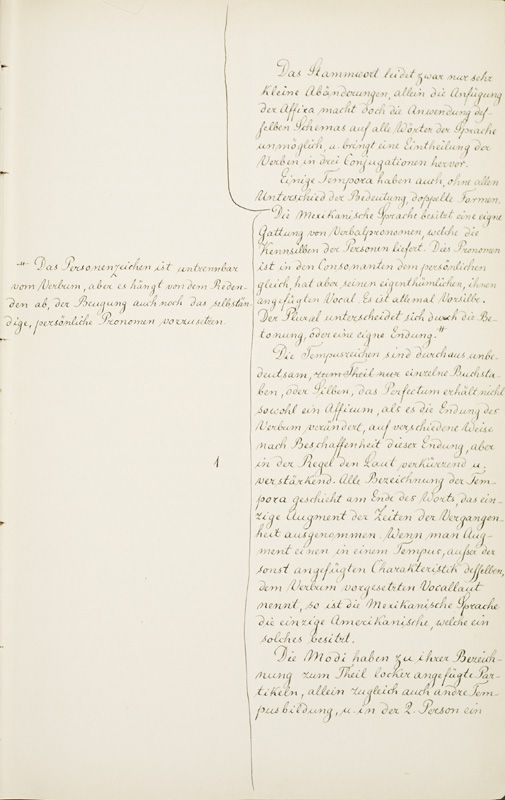 Das Stammwort leidet zwar nur sehr
kleine Abänderungen, allein die Anfügung
der Affixa macht doch die Anwendung des-
selben Schemas auf alle Wörter der Sprache
unmöglich, u. bringt eine Eintheilung der
Verben in drei Conjugationen hervor.
Einige Tempora haben auch, ohne allen
Unterschied der Bedeutung, doppelte Formen.
Die Mexikanische Sprache besitzt eine eigne
Gattung von Verbalpronomen, welche die
Kennsilben der Personen liefert. Dies Pronomen
ist in den Consonanten dem persönlichen
gleich, hat aber seinen eigenthümlichen, ihnen
angefügten Vocal. Es ist allemal Vorsilbe.
Der Plural unterscheidet sich durch die Be-
tonung, oder eine eigne Endung.#
Die Tempuszeichen sind durchaus unbe-
deutsam, zum Theil nur einzelne Buchsta-
ben, oder Silben, das Perfectum erhält nicht
sowohl ein Afficum, als es die Endung des
Verbum verändert, auf verschiedene Weise
nach Beschaffenheit dieser Endung, aber
in der Regel den Laut verkürzend u.
verstärkend. Alle Bezeichnung der Tem-
pora geschieht am Ende des Worts, das ein-
zige Augment der Zeiten der Vergangen-
heit ausgenommen. Wenn man Aug-
ment einen in einem Tempus, ausser der
sonst angefügten Charakteristik desselben,
dem Verbum vorgesetzten Vocallaut
nennt, so ist die Mexikanische Sprache
die einzige Amerikanische, welche ein
solches besitzt.
Die Modi haben zu ihrer Bezeich-
nung zum Theil locker angefügte Par-
tikeln, allein zugleich auch andre Tem-
pusbildung, u. in der 2. Person ein
# Das Personenzeichen ist untrennbar
vom Verbum, aber es hängt von dem Reden-
den ab, der Beugung auch noch das selbstän-
dige, persönliche Pronomen vorzusetzen.
1